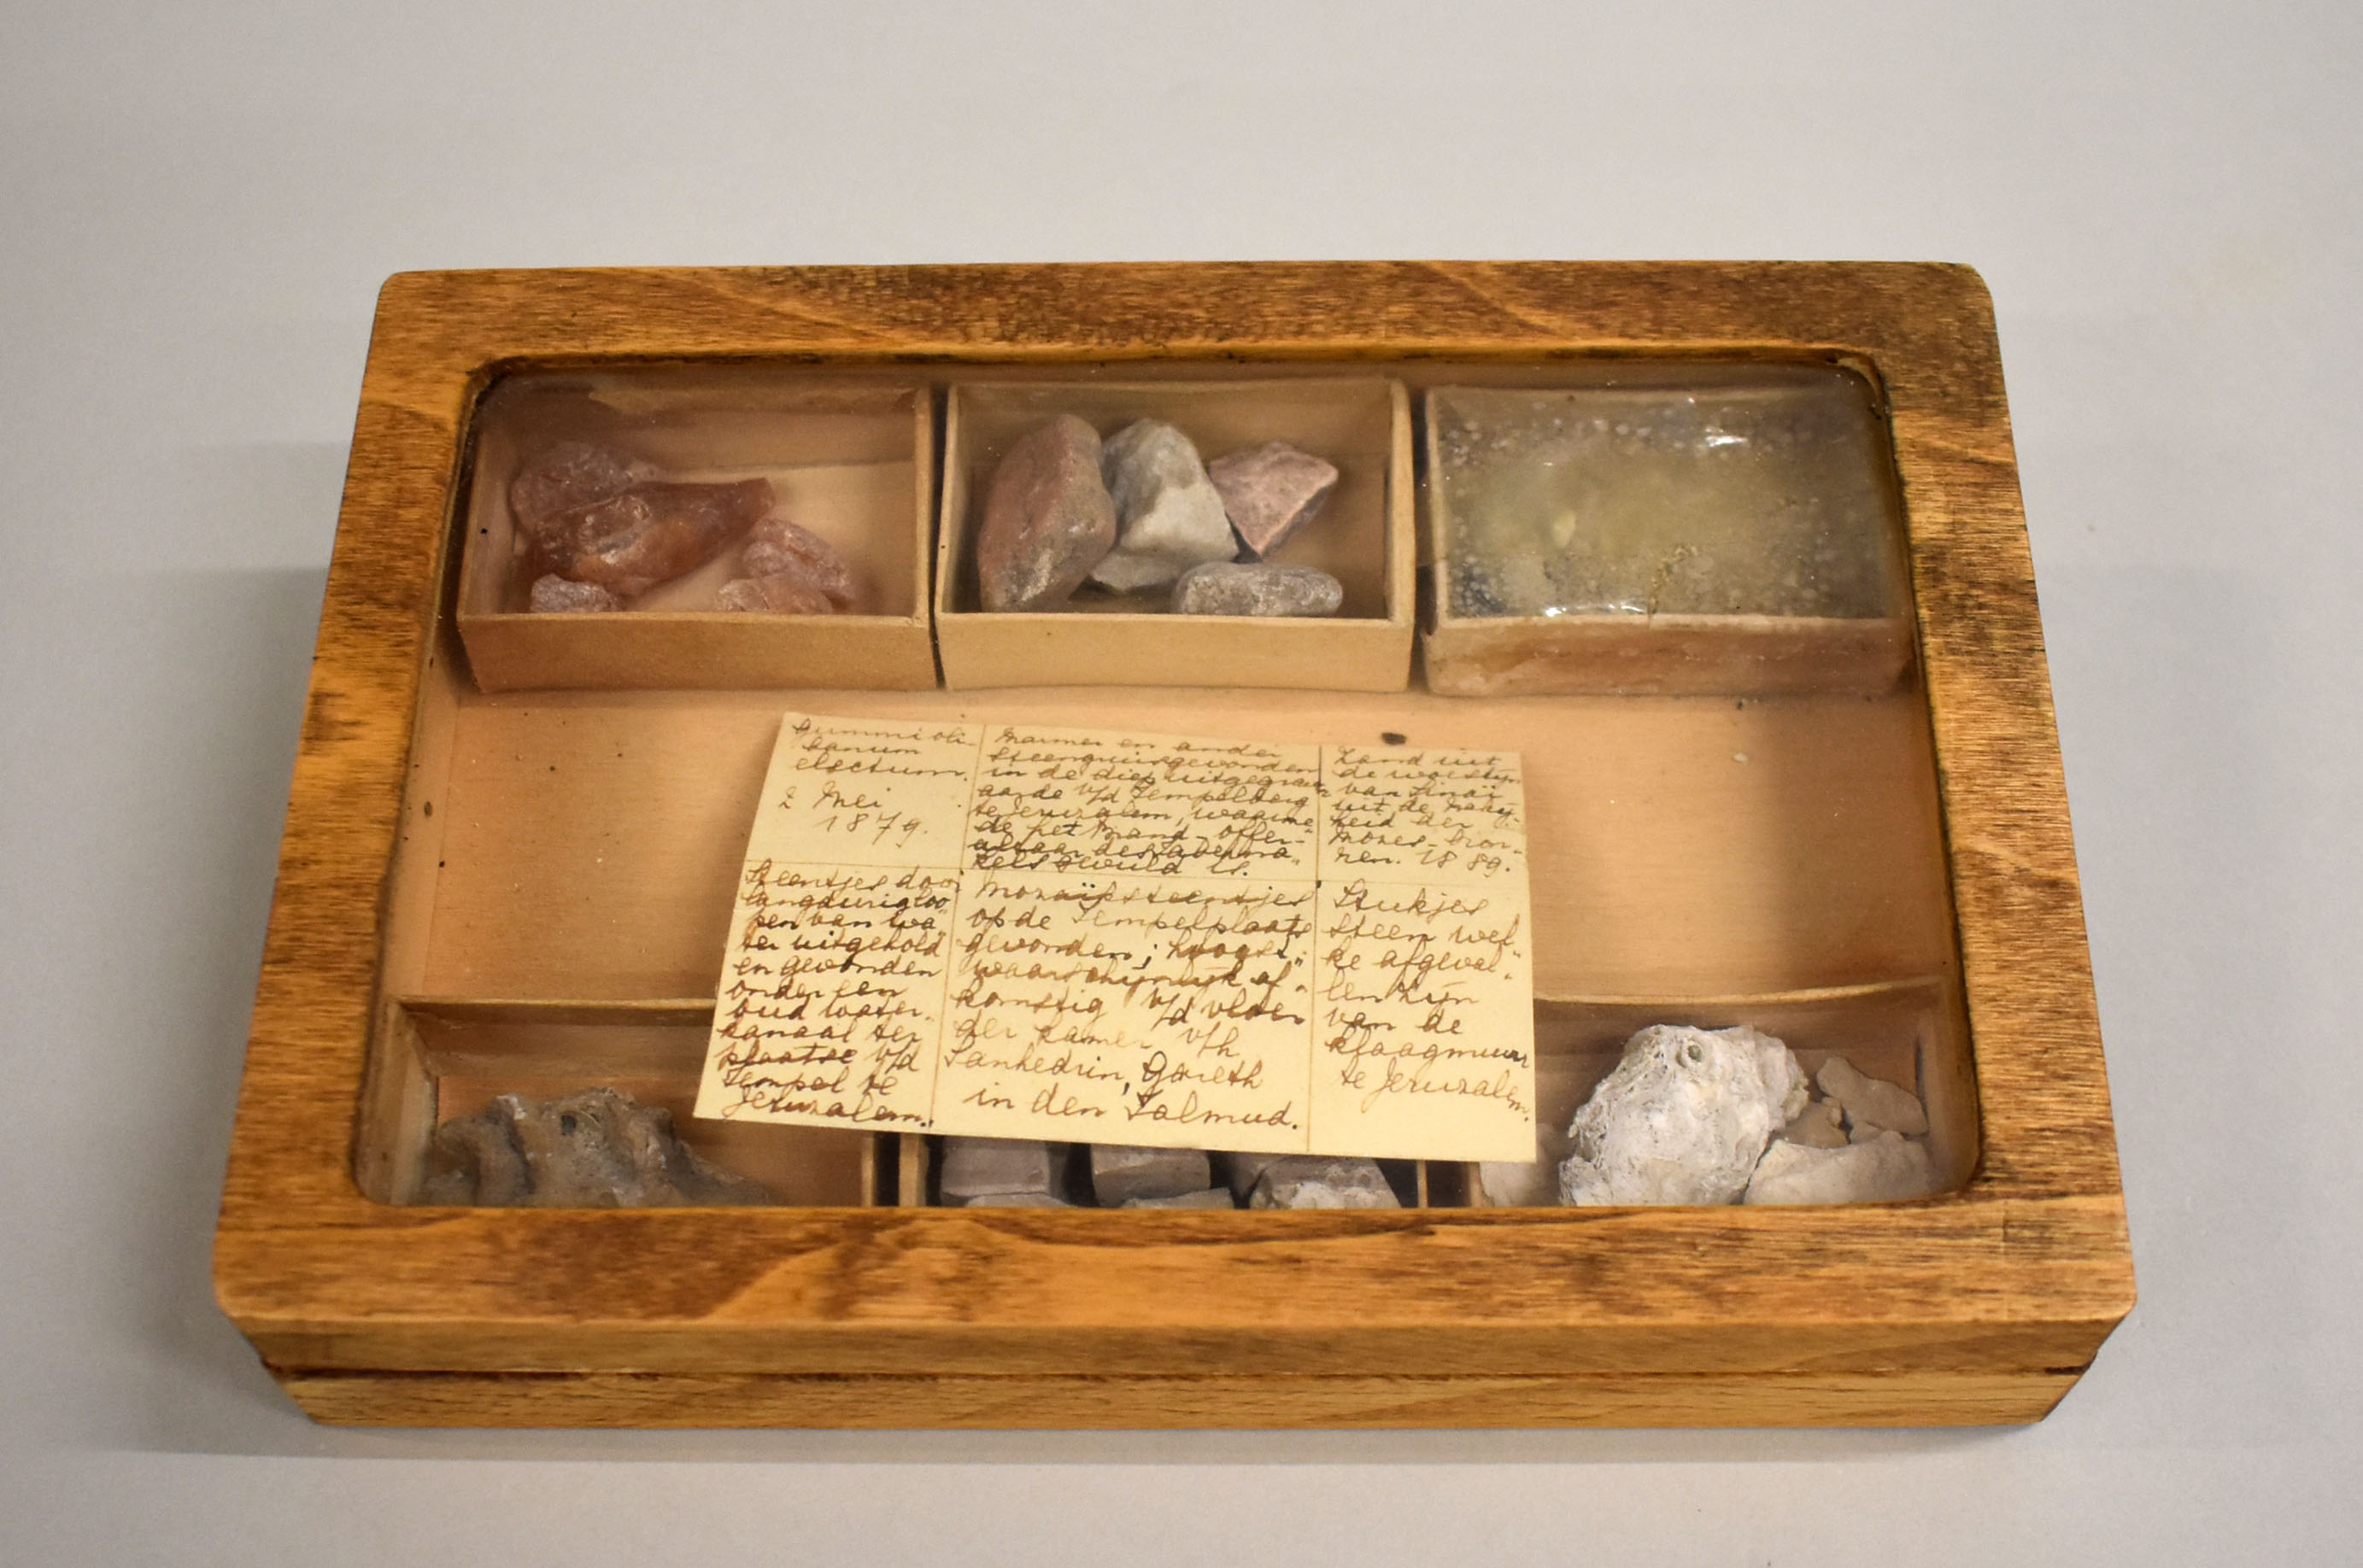 Gummi oli-
banum
electum.
2 Mei
1879.
Marmer en ander
steengruis gevonden
in de diep uitgegra
aarde v/d Tempelberg
te Jeruzalem, waarme"
de het Brand-offer-
altaar des Taberna"
kels gevuld is.
Zand uit
de woestijn
van Sinaï
uit de nabij-
heid der
Mozes-bron-
nen. 1889.
Steentjes door
langdurig loo"
pen van wa"
ter uitgehold
en gevonden
onder een
oud water-
kanaal ter
plaatse v/d
Tempel te
Jeruzalem.
Mozaïksteentjes
op de Tempelplaats
gevonden; hoogst"
waarschijnlijk af"
komstig v/d vloer
der kamer v/h
Sanhedrin, Gazith
in den Talmud.
Stukjes
steen wel"
ke afgeval"
len zijn
van de
Klaagmuur
te Jeruzalem.